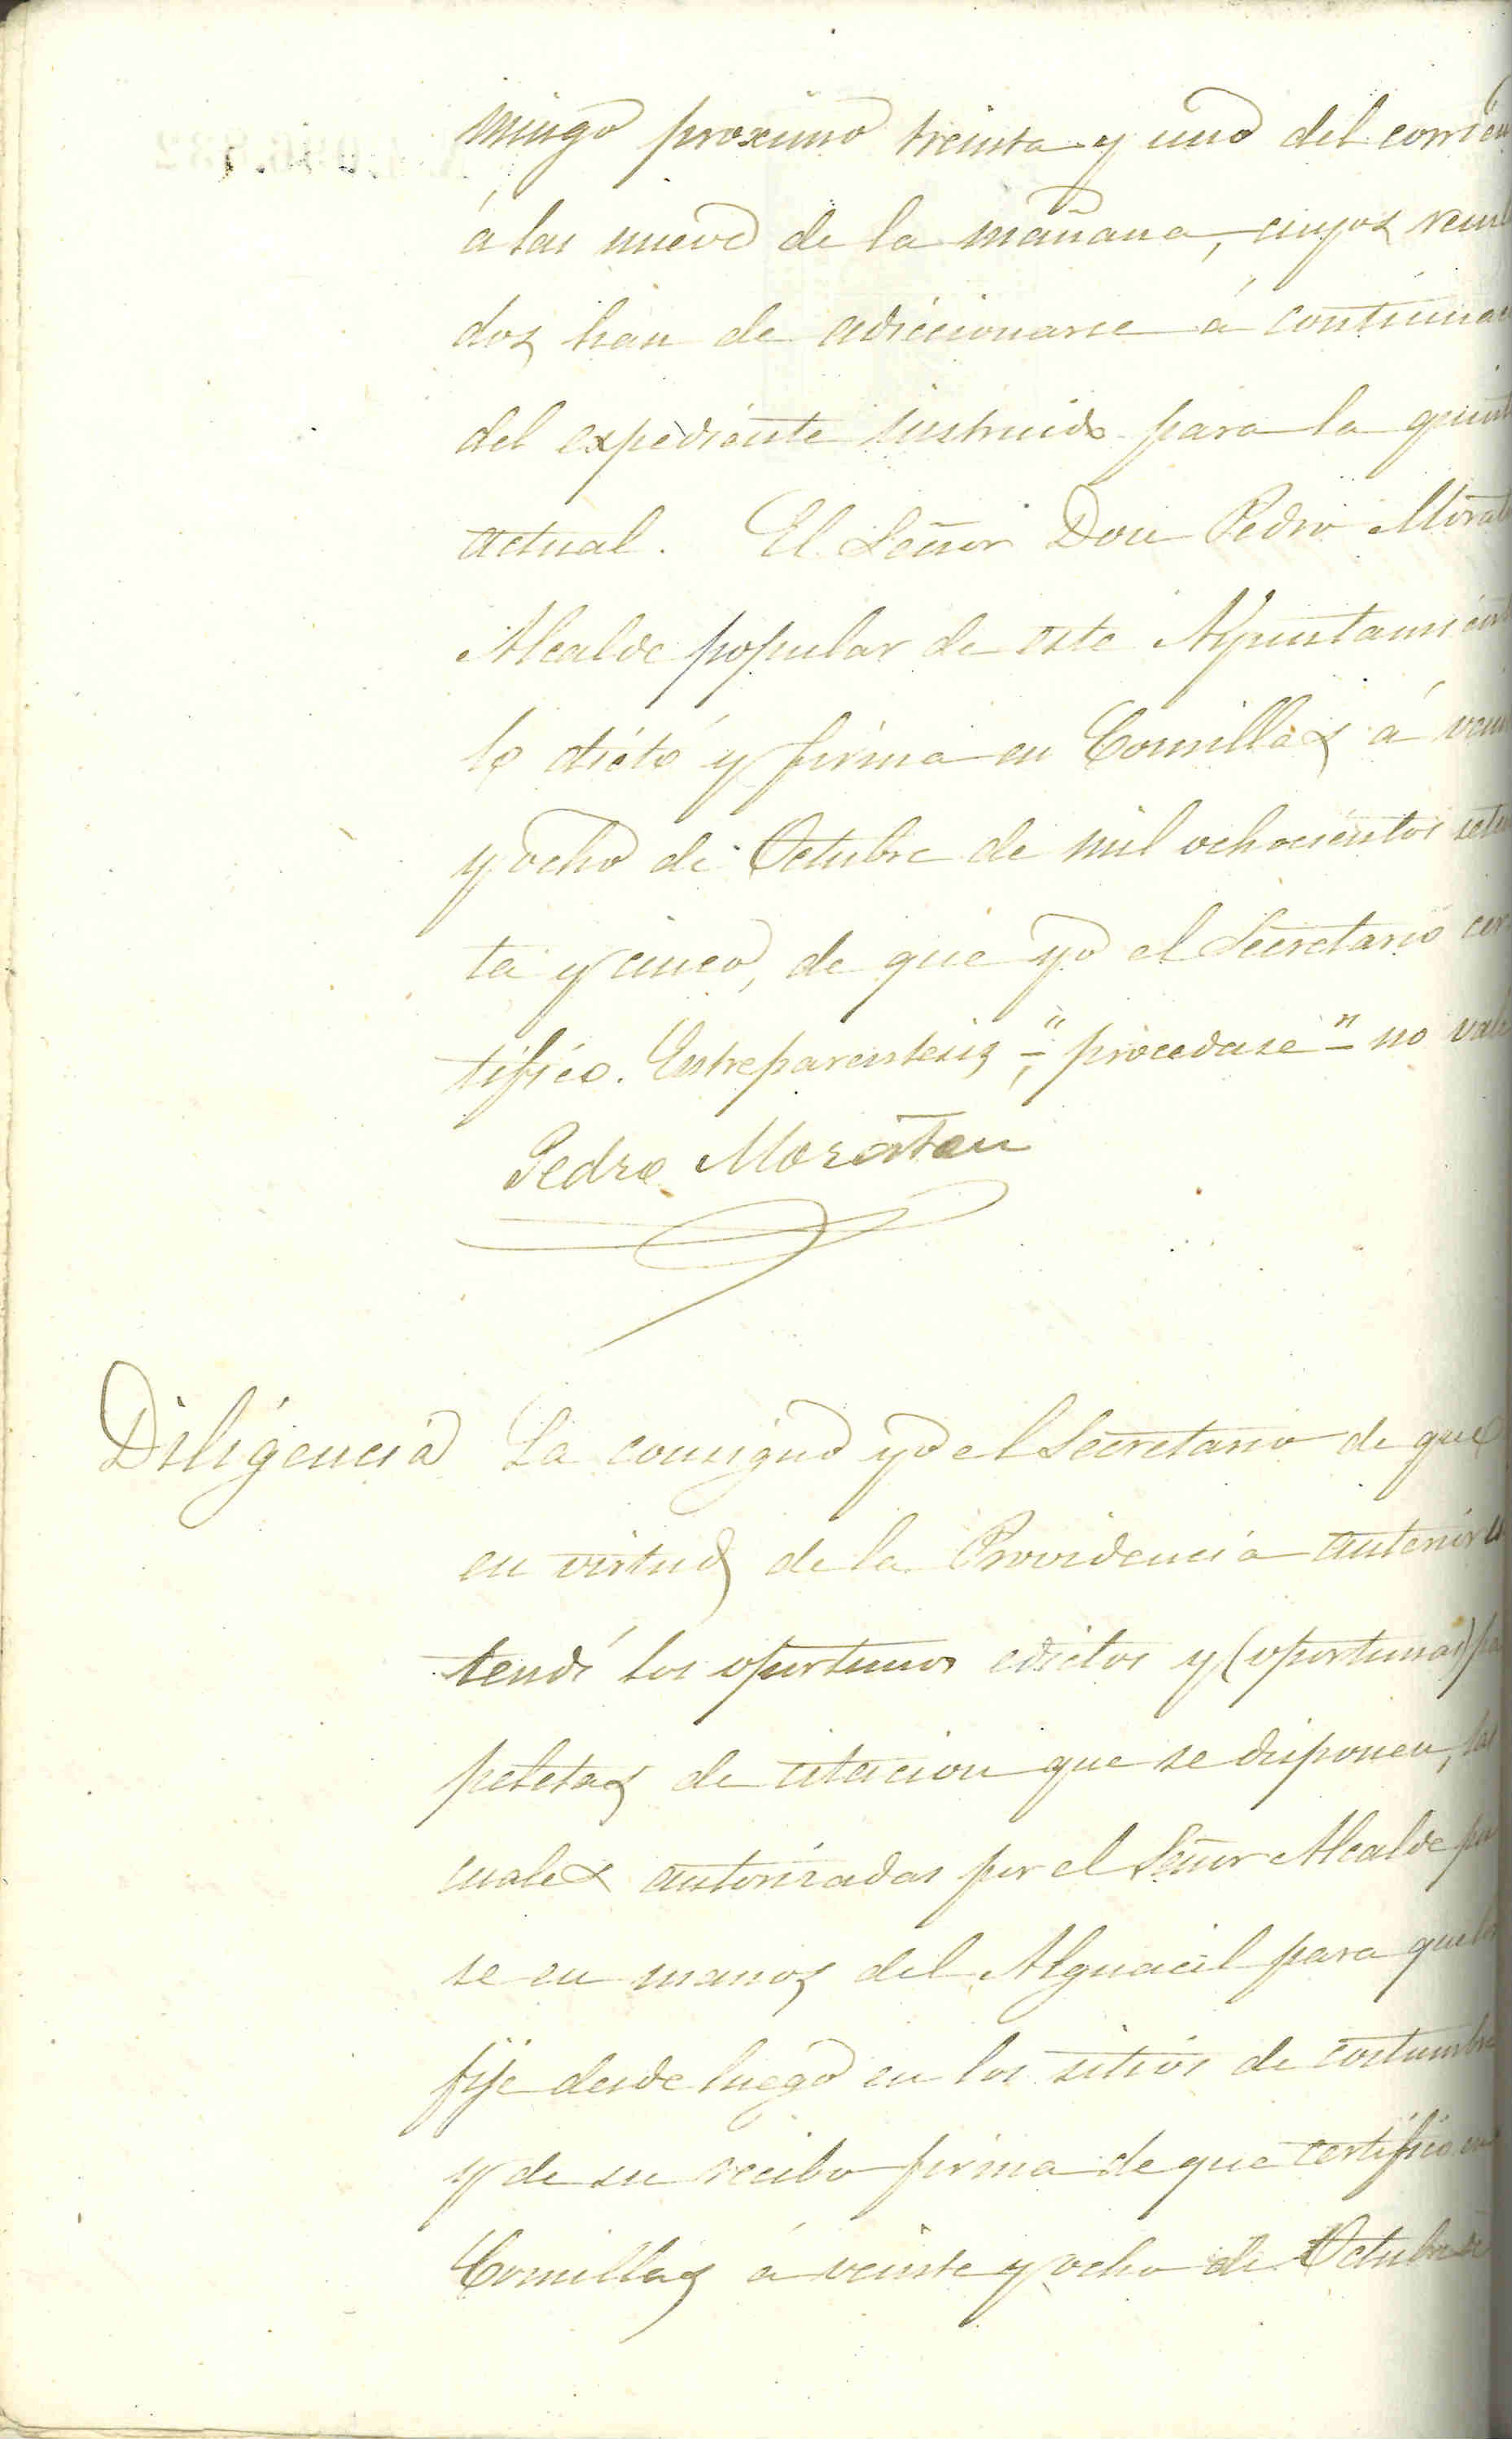 mingo proximo treinta y uno del corrien
á las nueve de la mañana, cuyos
dos han de adiccionarse á continuac
del expediente instruido para la quint
actual. El Señor Don Pedro Morat
Alcalde popular de este Ayuntamient
lo dictó y firma en Comillas á vein
y ocho de Octubre de mil ochocientos seten
ta y cinco, de que yo el Secretario cer
tifico. Entreparentesis, "procedase" no vale
Pedro Moratan
Diligencia La consigno yo el Secretario de que
en virtud de la Providencia anterior
tendí los oportunos edictos y (oportunas) pa
peletas de citacion que se disponen, las
cuales autorizadas por el Señor Alcalde pu
se en manos del Alguacil para que los
fije desde luego en los sitios de costumbre
y de su recibo firma de que certifico en
Comillas á veinte y ocho de Octubre de